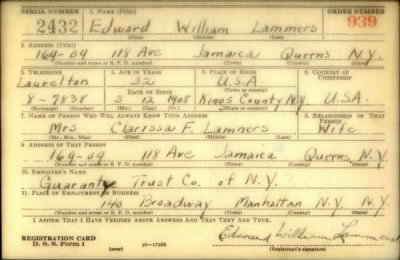 SERIAL NUMBER 1. NAME (Print) ORDER NUMBER
2432 Edward William Lammers 939
2. ADDRESS (Print)
169-09 118 Ave Jamaica Queens N.Y.
3. TELEPHONE 4. AGE IN YEARS 5. PLACE OF BIRTH 6. COUNTRY OF CITIZENSHIP
Laurelton 32 U.S.A.
DATE OF BIRTH (Town or county)
8-7838 3 12 1908 Kings County N.Y. U.S.A.
(Exchange) (Number) (Mo.) (Day) (Yr.) (State or country)
7. NAME OF PERSON WHO WILL ALWAYS KNOW YOUR ADDRESS 8. RELATIONSHIP OF THAT PERSON
Mrs Clarissa F. Lammers Wife
(Mr., Mrs., Miss) (First) (Middle) (Last)
9. ADDRESS OF THAT PERSON
169-09 118 Ave Jamaica Queens, N.Y.
(Number and street or R. F. D. number) (Town) (County) (State)
10. EMPLOYER'S NAME
Guaranty Trust Co. of N.Y.
11. PLACE OF EMPLOYMENT OR BUSINESS
140 Broadway Manhattan N.Y. N.Y.
(Number and street or R. F. D. number) (Town) (County) (State)
I AFFIRM THAT I HAVE VERIFIED ABOVE ANSWERS AND THAT THEY ARE TRUE.
REGISTRATION CARD Edward William Lammers
D. S. S. Form 1 (over) (Registrant's signature)